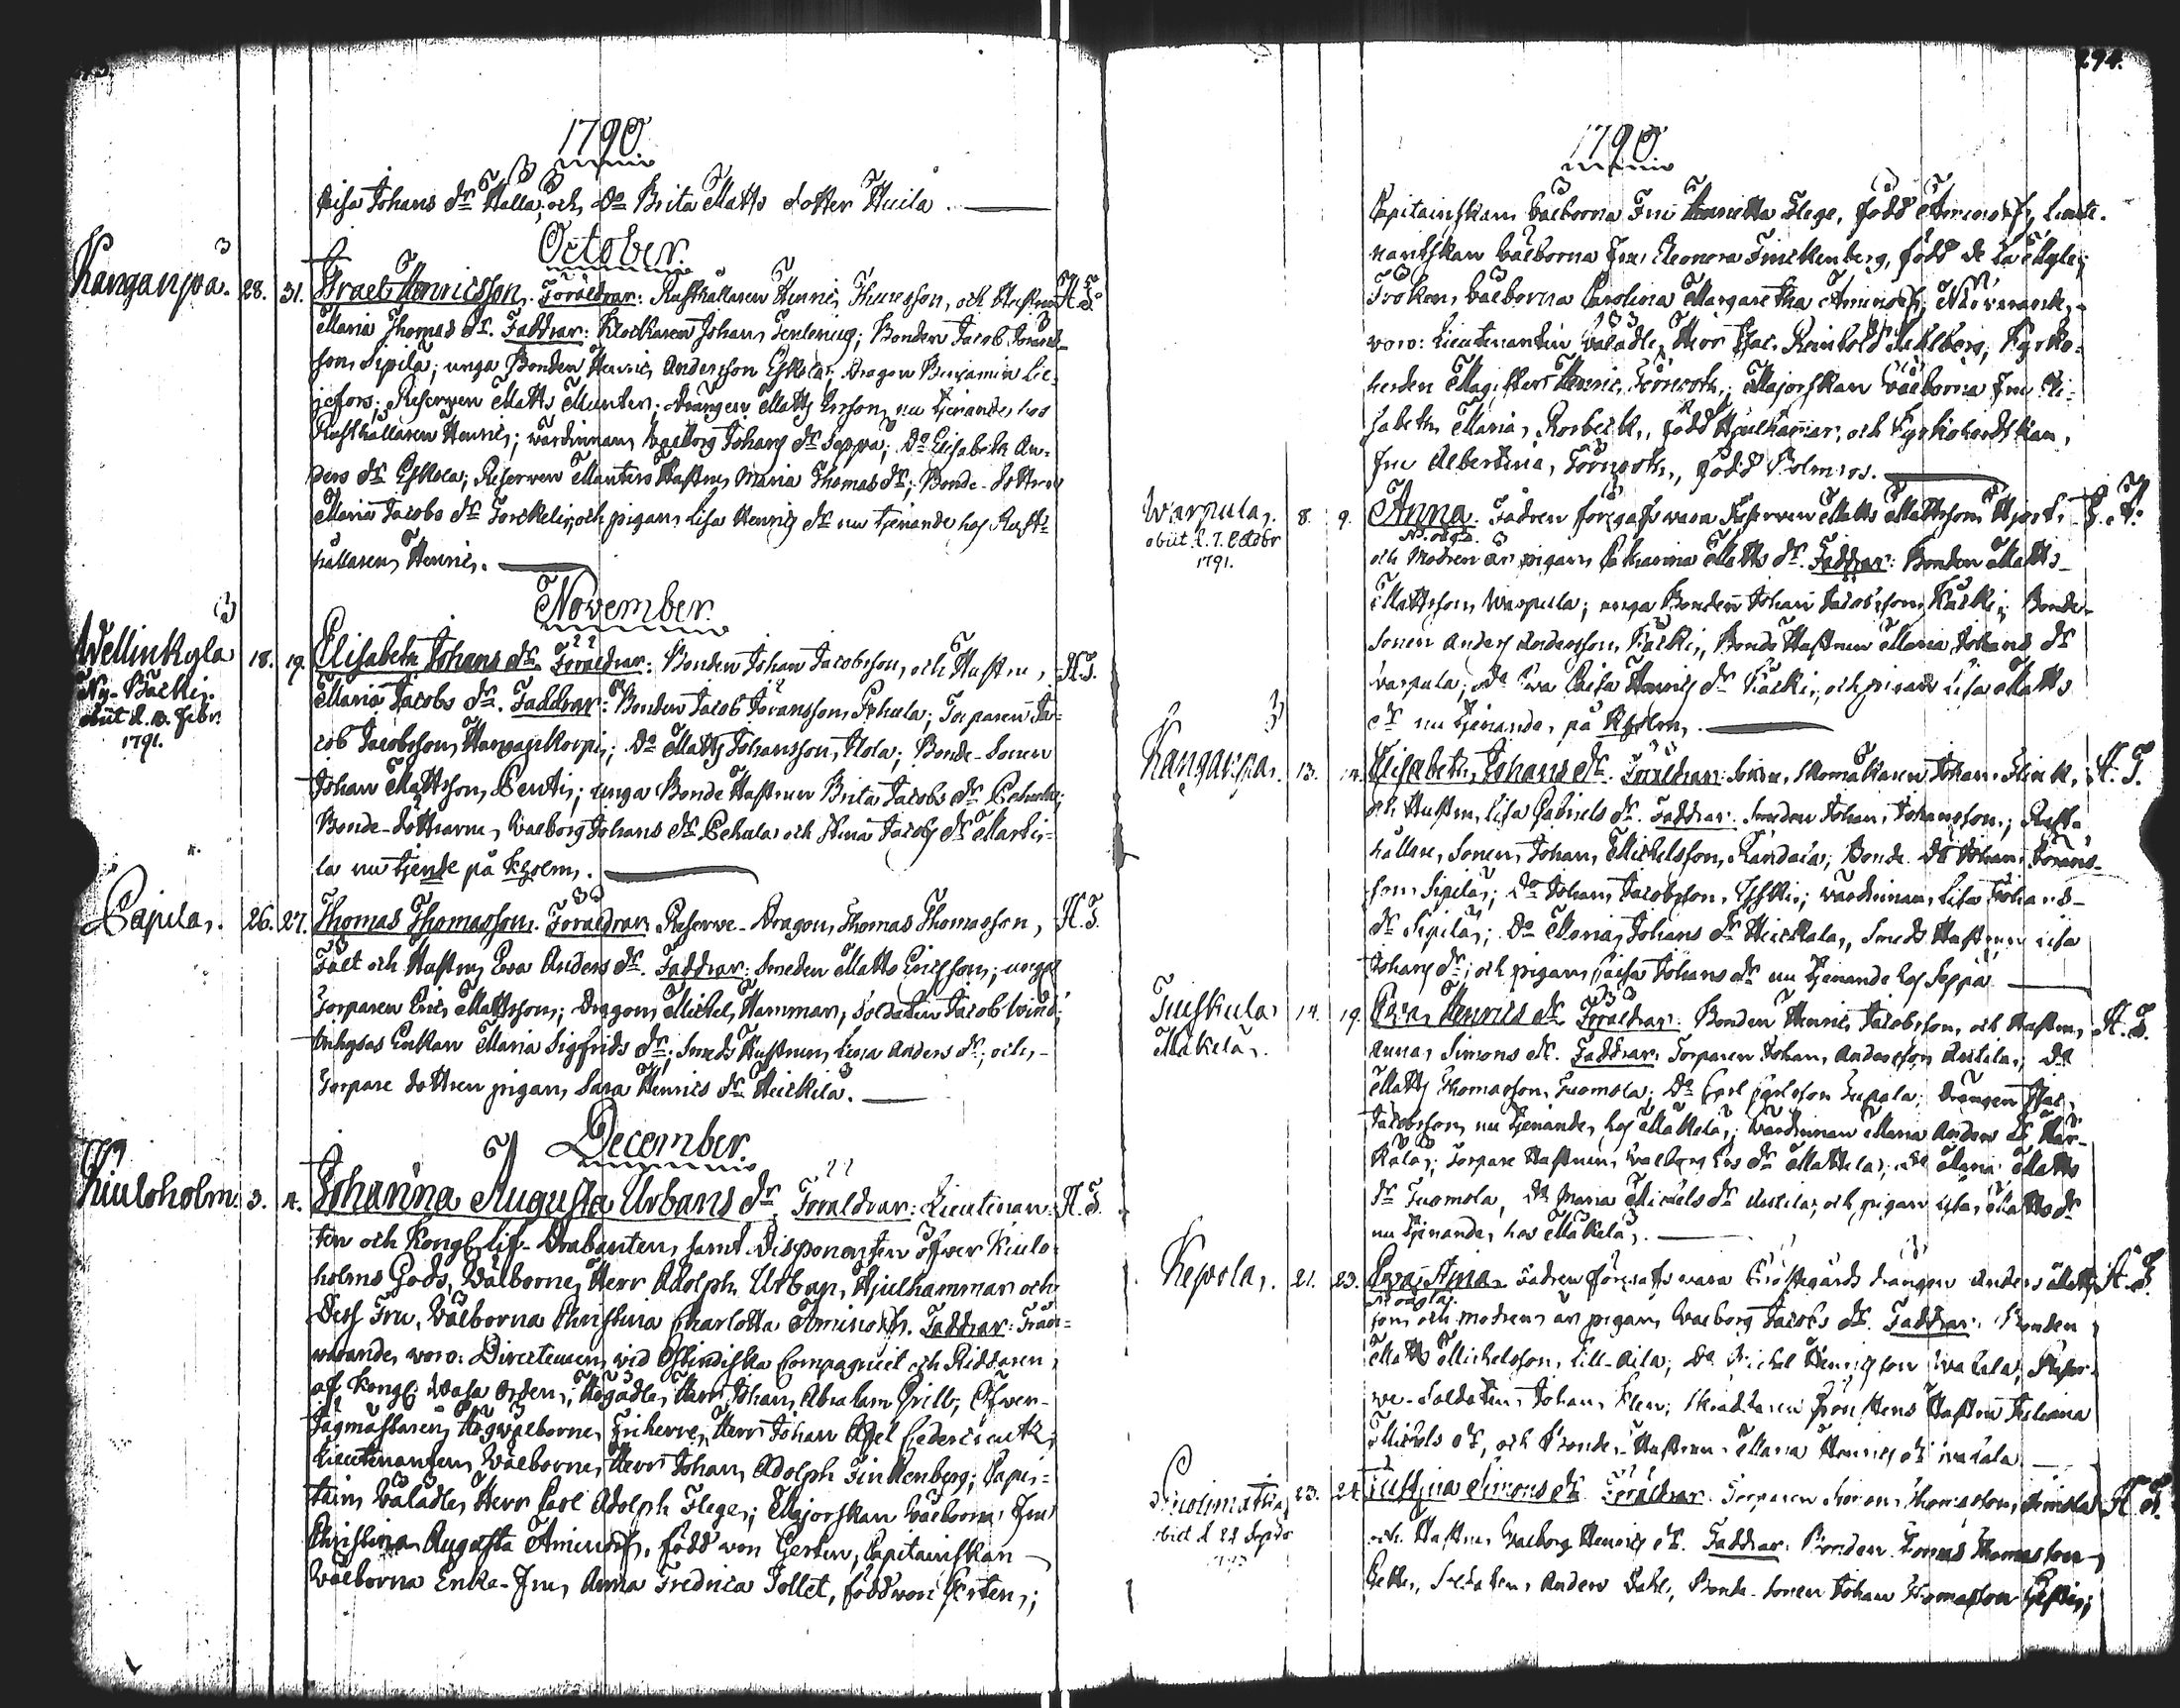 1790
Caisa Johans dr Halla; och do Brita Matts dotter Huila.
October.
Kanganpä. 28. 31. Israel Henricsson. Föräldrar: Rusthållaren Henric Thuresson, och Hustrun H. T.
Maria Thomas dr. Faddrar: Klockaren Johan Tenlenius; Bonden Jacob Jöran-
son Sipilä; unga Bonden Henric Andersson Eskola; Dragon Benjamin Lie-
jefors; Reserven Matts Munter; drängen Matts Ersson nu tjenande hos
Rusthållaren Henric; wärdinnan Walborg Johans dr Seppä; Do Elisabeth An-
ders dr Eskola; Reserven Munters Hustru Maria Thomas dr; Bonde-dottren
Maria Jacobs dr Torckeli; och pigan Lisa Henrics dr nu tjenande hos Rust-
hållaren Henric.
November.
Wellinkylä 18. 19. Elisabeth Johans dr. Föräldrar: Bonden Johan Jacobsson, och Hustru H. T.
Ny-Bäcki.
obiit d. 10. Febr.
1791.
Maria Jacobs dr. Faddrar: Bonden Jacob Jöransson Pehula; Torparen Ja-
cob Jacobsson Hangankorpi; Do Matts Johansson Alola; Bonde-Sonen
Johan Mattsson Pentti; unga Bonde Hustrun Brita Jacobs dr Pehula;
Bonde-dottrarne, Walborg Johans dr Pehula och Stina Jacobs dr Marki-
la nu tjende på Kholm.
Papula. 26. 27. Thomas Thomasson. Föräldrar Reserve-Dragon Thomas Thomasson H. T.
Fält och Hustru Eva Anders dr. Faddrar: Smeden Matts Ericsson; unga
Torparen Eric Mattsson; Dragon Michel Hamman; Soldaten Jacob Wind;
Inhyses Enkan Maria Sigfrids dr; Smeds Hustrun Lena Anders dr; och
Torpare dottren pigan Sara Henrics dr Heickilä.
December.
Kiuloholm. 3. 4. Johanna Augusta Urbans dr Föräldrar: Lieutenan- H. T.
ten och Kongl. Lif-Drabanten, samt Disponenten öfwer Kiulo-
holms Gods, Wälborne Herr Adolph Urban Hjulhammar och
Dess Fru, Wälborna Christina Charlotta Aminoff. Faddrar: Från-
warande woro: Directeuren wid Ostindiska Compagniet och Riddaren
af Kongl. Wasa Orden, Högädle Herr Johan Abraham Grill; Öfwer-
Jägmästaren Högwälborne Friherre Herr Johan Axel Cedercreutz;
Lieutenanten Wälborne Herr Johan Adolph Finckenberg; Capi-
tain Wälädle Herr Carl Adolph Flege; Majorskan Wälborna Fru
Christina Augusta Aminoff, född von Gerten, Capitainskan
Wälborna Enke-Fru Anna Fredrica Tollet, född von Gerten;
294.
1790
Capitainskan Wälborna Fru Henrietta Flege, född Aminoff, Lieute-
nantskan Wälborna Fru Eleonora Finckenberg, född de la Myle;
Fröken Wälborna Carolina Margaretha Aminoff; Närwarande
woro: Lieutenanten Wälädle Herr Isac Reinhold Sahlberg, Kyrko-
herden Magister Henric Törnroth; Majorskan Wälborna Fru Eli-
sabeth Maria Rosbeck, född Hjulhammar, och Kyrkoherdskan
Fru Albertina Törnroth, född Polmros.
Warpula. 8. 9. Anna. Fadren föregafs wara Reserven Matts Mattsson Hjort
obiit d. 7. Octobr
1791.
och Modren är pigan Catharina Matts dr. Faddrar: Bonden Matts
Mattsson Warpula; unga Bonden Johan Jacobsson Käcki; Bonde-
Sonen Anders Andersson Käcki, Bonde Hustrun Maria Johans dr
Warpula; Caisa Henrics dr Käcki, och pigan Lisa Matts
dr nu tjenande på Kholm.
Kanganpä. 13. 14. Elisabeth Johans dr. Föräldrar: Skomakaren Johan Flinck, H. T.
och Hustru Lisa Gabriels dr. Faddrar. Smeden Johan Johansson; Rust-
hållare Sonen Johan Michelsson Randala; Bonde do Johan Jörans-
son Sipilä; Do Johan Jacobsson; wärdinnan Lisa Johans
dr Sipilä; Do Maria Johans dr Heickala, Smeds Hustrun Lisa
Johans dr; och pigan Caisa Johans dr nu tjenande hos Seppä
Tuiskula 14. 19. Eva Henrics dr. Föräldrar: Bonden Henric Jacobsson, och Hustru H. T.
Mäkelä.
Anna Simons dr. Faddrar: Torparen Johan Andersson Antila; Do
Matts Thomasson Tuomola; Do Carl Carlsson Tupala; Drängen Isac
Jacobsson nu tjenande hos Mäkelä; Wärdinnan Maria Anders dr
Torpare Hustrun Walborg Ers dr Mattela; Maria Matts
dr Tuomola, Do Maria Michels dr Antila; och pigan Lisa Matts dr
nu tjenande hos Mäkelä.
Kepola. 21. 23. Eva Stina. Fadren föregafs wara drängen Anders Matts- H. T.
son och modren är pigan Walborg Jacobs dr. Faddrar: Bonden
Matts Michelsson Lill-Aila; Do Michel Henricsson; Reser-
ve-Soldaten Johan Klen; Hustru Juliana
Michels dr, och Bonde-Hustrun Maria Henrics dr
23. 24. Justina Simons dr Föräldrar: Torparen Simon Thomasson H. T.
och Hustru Walborg Henrics dr. Faddrar: Bonden Thomas Thomasson
Soldaten Anders Dahl, Bonde-Sonen Johan Thomasson